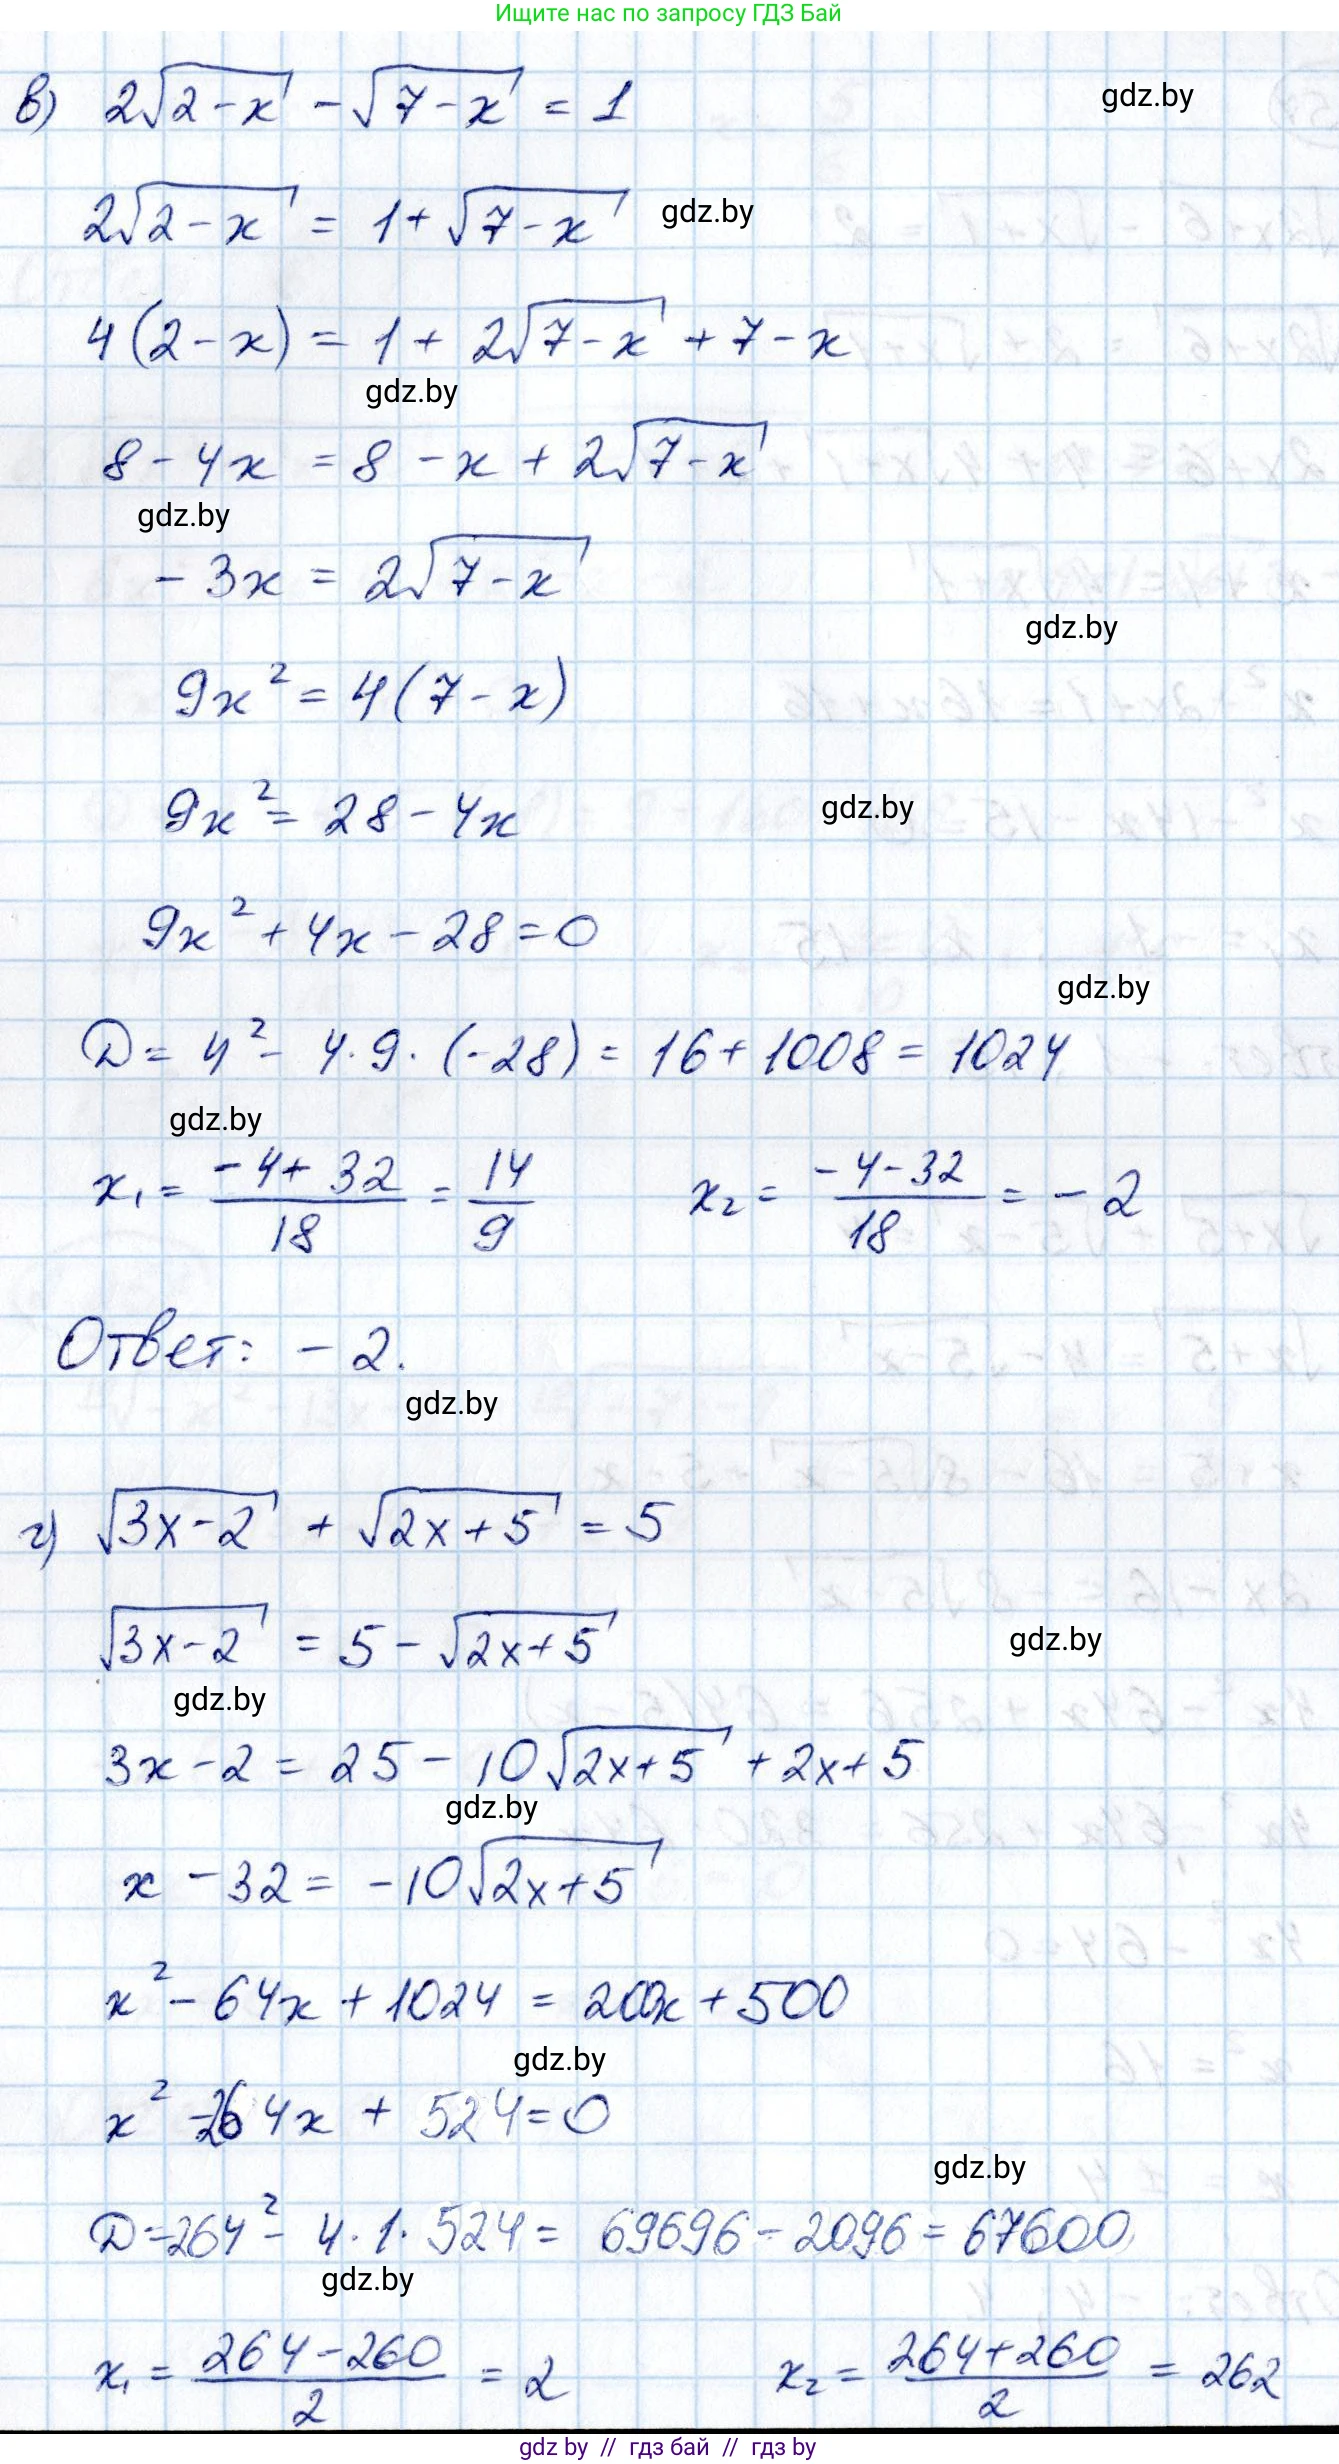 Ищите нас по запросу ГДЗ Бай
в) 2√(2-x) - √(7-x) = 1
gdz.by
2√(2-x) = 1+√(7-x)
gdz.by
4(2-x) = 1+ 2√(7-x) + 7-x
gdz.by
8-4x = 8-x + 2√(7-x)
gdz.by
-3x = 2√(7-x)
gdz.by
9x² = 4(7-x)
9x² = 28-4x
gdz.by
9x² + 4x - 28 = 0
gdz.by
D = 4² - 4·9·(-28) = 16+1008 = 1024
gdz.by
x₁ = (-4+32)/18 = 14/9 x₂ = (-4-32)/18 = -2
Ответ: -2.
gdz.by
г) √(3x-2) + √(2x+5) = 5
√(3x-2) = 5-√(2x+5)
gdz.by
gdz.by
3x-2 = 25-10√(2x+5) + 2x+5
gdz.by
x-32 = -10√(2x+5)
x² - 64x + 1024 = 200x + 500
gdz.by
x² - 264x + 524 = 0
gdz.by
D = 264² - 4·1·524 = 69696 - 2096 = 67600
gdz.by
x₁ = (264-260)/2 = 2 x₂ = (264+260)/2 = 262
gdz by // гдз бай // гдз by